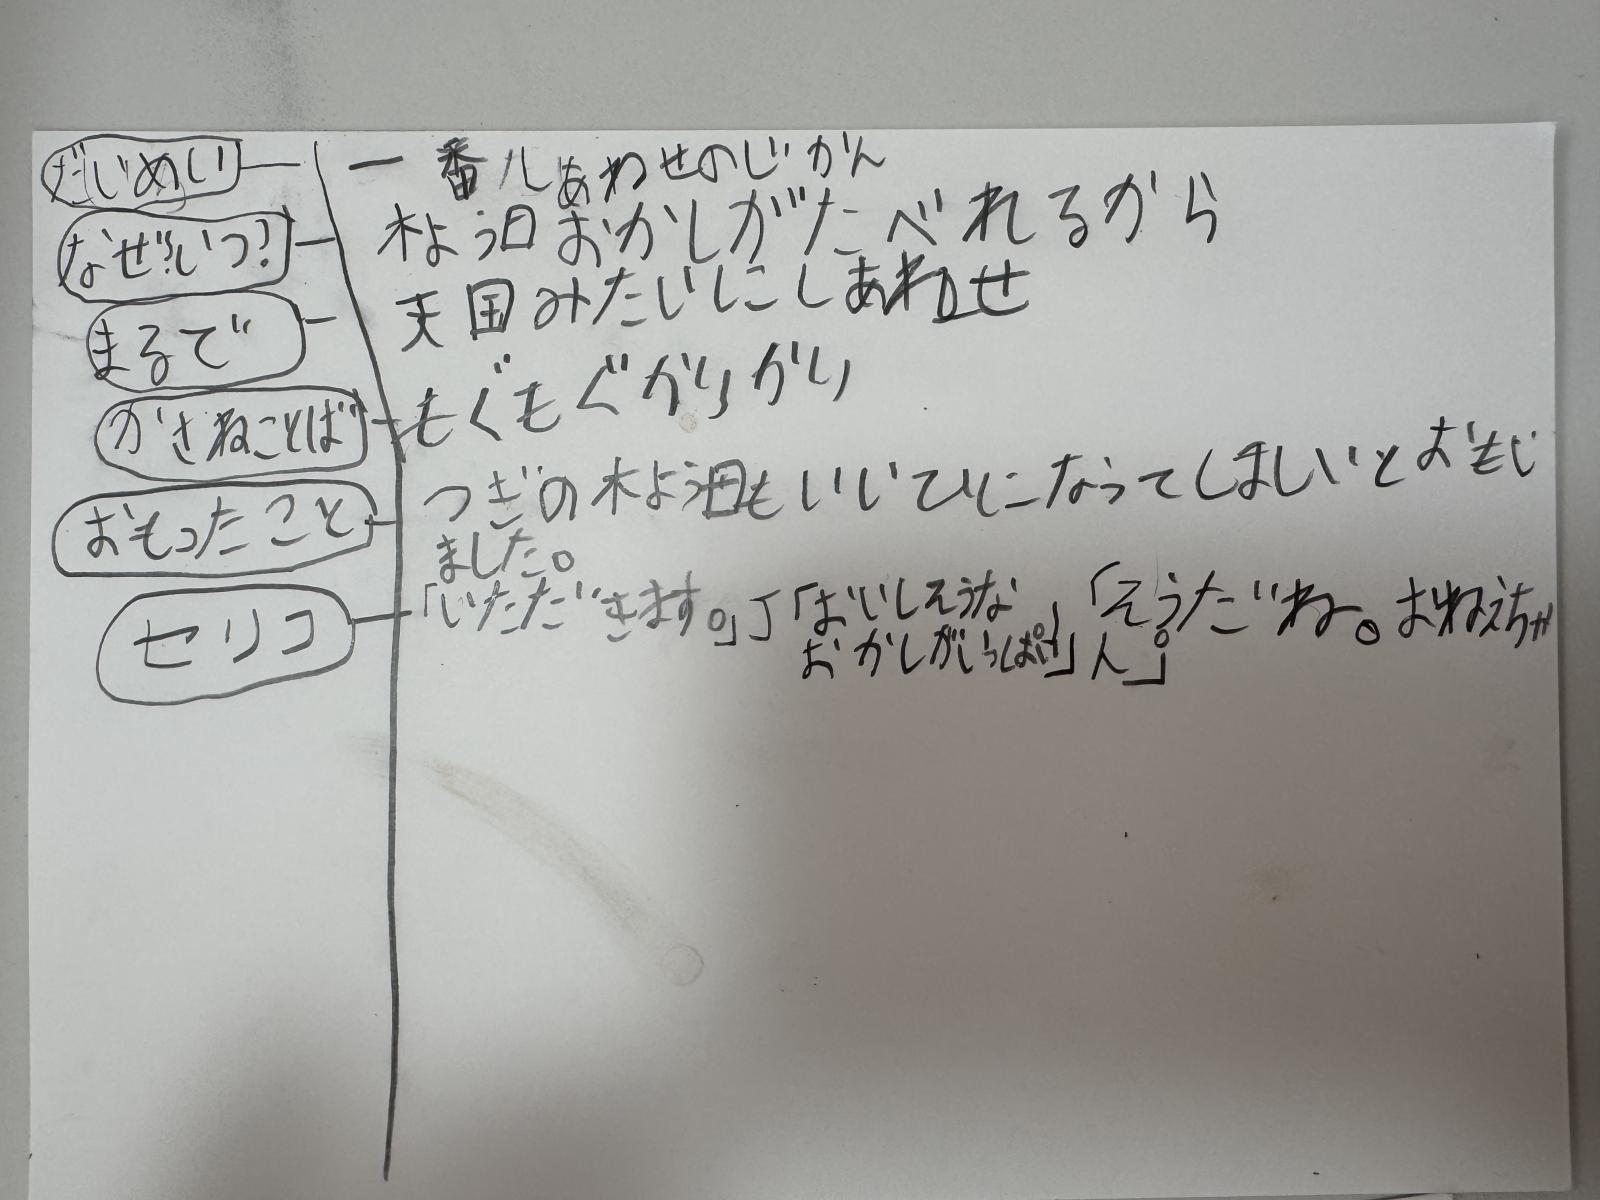 だいめい 一番しあわせのじかん
なぜ?いつ? 木よう日おかしがたべれるから
まるで 天国みたいにしあわせ
かさねことば もぐもぐがりがり
おもったこと つぎの木よう日もいいひになってほしいとおもい
ました。
セリフ 「いただきます。」「おいしそうな
おかしがいっぱい。」「そうだね。おねえちゃ
ん。」